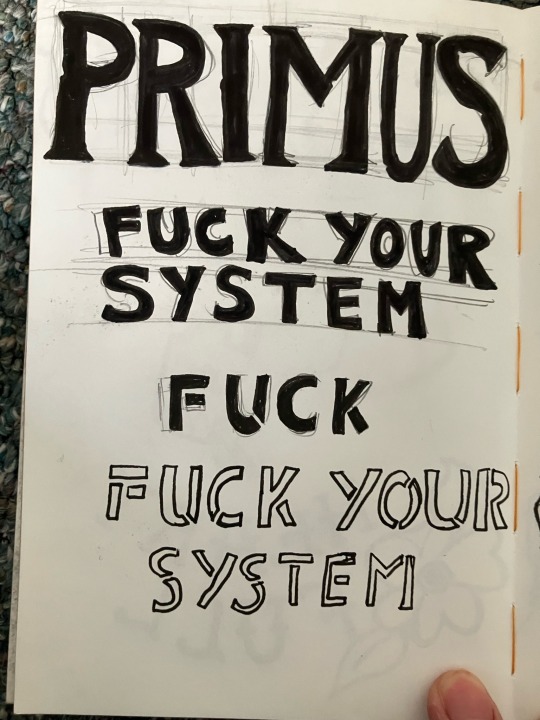 PRIMUS
FUCK YOUR
SYSTEM
FUCK
FUCK YOUR
SYSTEM